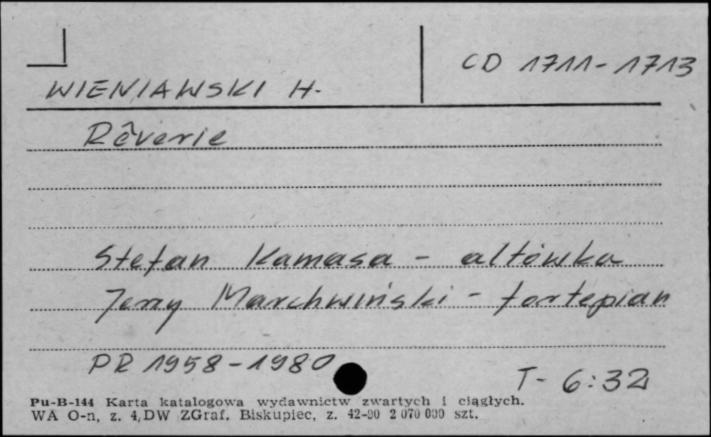 CD 1711-1713
WIENIAWSKI H.
Rêverie
Stefan Kamasa - altówka
Jerzy Marchwiński - fortepian
PR 1958-1980
T- 6:32
Pu-B-144 Karta katalogowa wydawnictw zwartych i ciągłych.
WA O-n, z. 4,DW ZGraf. Biskupiec, z. 42-90 2 070 000 szt.